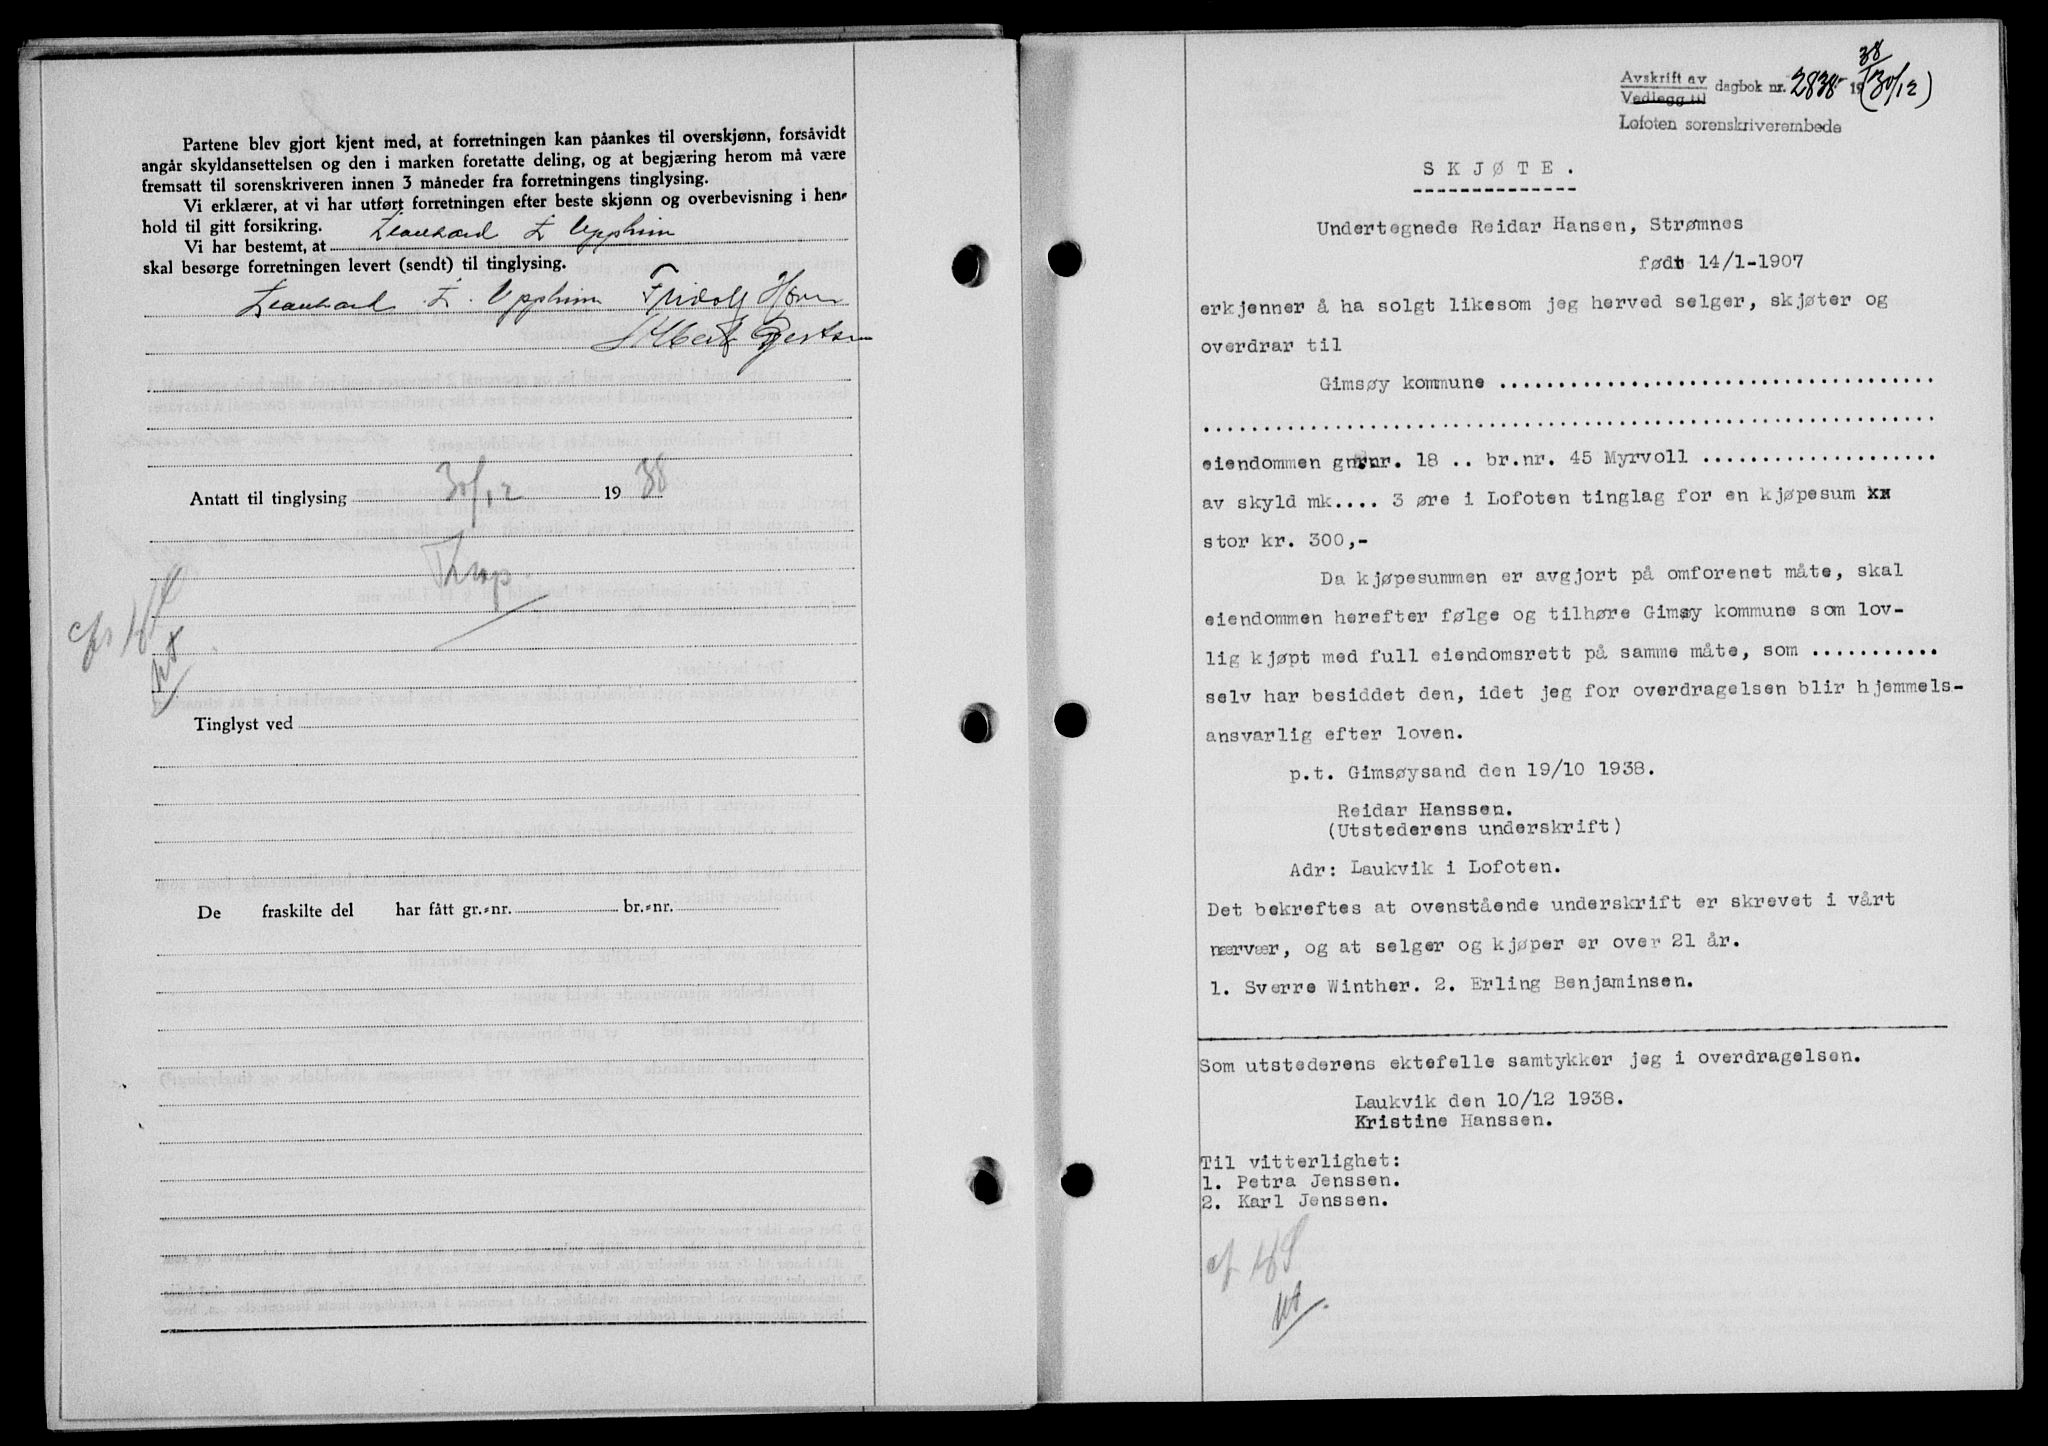 Partene blev gjort kjent med, at forretningen kan påankes til overskjønn, forsåvidt
angår skyldansettelsen og den i marken foretatte deling, og at begjæring herom må være
fremsatt til sorenskriveren innen 3 måneder fra forretningens tinglysing.
Vi erklærer, at vi har utført forretningen efter beste skjønn og overbevisning i hen-
hold til gitt forsikring.
Vi har bestemt, at Leonhard L Uppheim
skal besørge forretningen levert (sendt) til tinglysing.
Leonhard L. Uppheim Fridolf
Albert
Antatt til tinglysing 30/12 1938
Tinglyst ved
De fraskilte del har fått gr.-nr. br.-nr.
Avskrift av
Vedlegg til dagbok nr. 2838 19 38 (30/12)
Lofoten sorenskriverembede
SKJØTE.
Undertegnede Reidar Hansen, Strømnes
født 14/1-1907
erkjenner å ha solgt likesom jeg herved selger, skjøter og
overdrar til
Gimsøy kommune .....................................
..............................................................
eiendommen gnrnr. 18 .. br.nr. 45 Myrvoll ....................
av skyld mk.... 3 øre i Lofoten tinglag for en kjøpesum xx
stor kr. 300,-
Da kjøpesummen er avgjort på omforenet måte, skal
eiendommen herefter følge og tilhøre Gimsøy kommune som lov-
lig kjøpt med full eiendomsrett på samme måte, som ...........
selv har besiddet den, idet jeg for overdragelsen blir hjemmels-
ansvarlig efter loven.
p.t. Gimsøysand den 19/10 1938.
Reidar Hanssen.
(Utstederens underskrift)
Adr: Laukvik i Lofoten.
Det bekreftes at ovenstående underskrift er skrevet i vårt
nærvær, og at selger og kjøper er over 21 år.
1. Sverre Winther. 2. Erling Benjaminsen.
Som utstederens ektefelle samtykker jeg i overdragelsen.
Laukvik den 10/12 1938.
Kristine Hanssen.
Til vitterlighet:
1. Petra Jenssen.
2. Karl Jenssen.